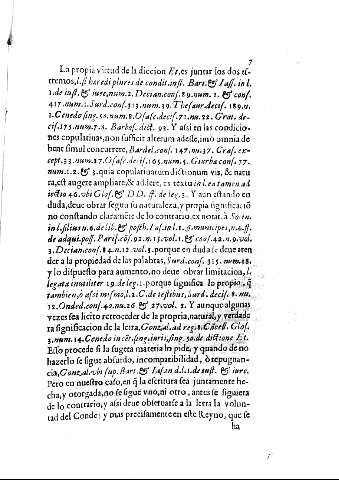 7
La propia virtud de la diccion Et, es juntar los dos es-
tremos, l. si heredi plures de condit. inst. Bart. & Ias. in l.
1. de inst. & iure, num. 2. Decian. cons. 89. num. 2. & cons.
417. num. 1. Surd. cons. 313. num. 39. Thesaur. decis. 189. n.
1. Cenedo sing. 50. num. 8. Osasc. decis. 72. nu. 22. Grat. de-
cis. 175. num. 7. 8. Barbos. dict. 98. Y assi en las condicio
nes copulatiuas, non sufficit alterum adesse, imò omnia de
bent simul concurrere, Bardel. cons. 147. nu. 37. Gras. ex-
cept. 33. num. 27. Osasc. decis. 165. num. 5. Giurba cons. 77.
num. 12. & 3. quia copulatiuarum dictionum vis, & natu
ra, est augere ampliare, & addere, ex textu in l. ea tamen ad
iectio 46. vbi Glos. & DD. ff. de leg. 3. Y aun estando en
duda, deue obrar segun su naturaleza, y propia significació
no constando claramēte de lo contrario, ex notat. à Socin.
in l. si filius n. 6. de lib. & posth. Ias. in l. 1. §. municipes, n. 4. ff.
de adqui. poss. Paris. cōs. 92. n. 15. vol. 1. & cons. 42. n. 9. vol.
3. Decian. cons. 84. n. 12. vol. 3. porque en duda se deue aten
der a la propiedad de las palabras, Surd. cons. 315. num. 18.
y lo dispuesto para aumento, no deue obrar limitacion, l.
legata inutiliter 19. de leg. 1. porque significa lo propio, q̃
tambien, ò assi mismo, l. 2. C. de testibus, Surd. decis. 8. nu.
12. Onded. cons. 40. nu. 26. & 27. vol. 2. Y aunque algunas
vezes sea licito retroceder de la propria, natural, y verdade
ra significacion de la letra, Gonzal. ad reg. 8. Cācell. Glos.
3. num. 14. Cenedo in cēt. sing. iuris, sing. 50. de dictione Et.
Esso procede si la sugeta materia lo pide, y quando de no
hazerlo se sigue absurdo, incompatibilidad, ò repugnan-
cia, Gonzal. vbi sup. Bart. & Iason d. l. 1. de iust. & iure.
Pero en nuestro caso, en q̃ la escritura sea juntamente he-
cha, y otorgada, no se sigue vno, ni otro, antes se siguiera
de lo contrario, y assi deue obseruarse a la letra la volun-
tad del Conde; y mas precisamente en este Reyno, que se
ha